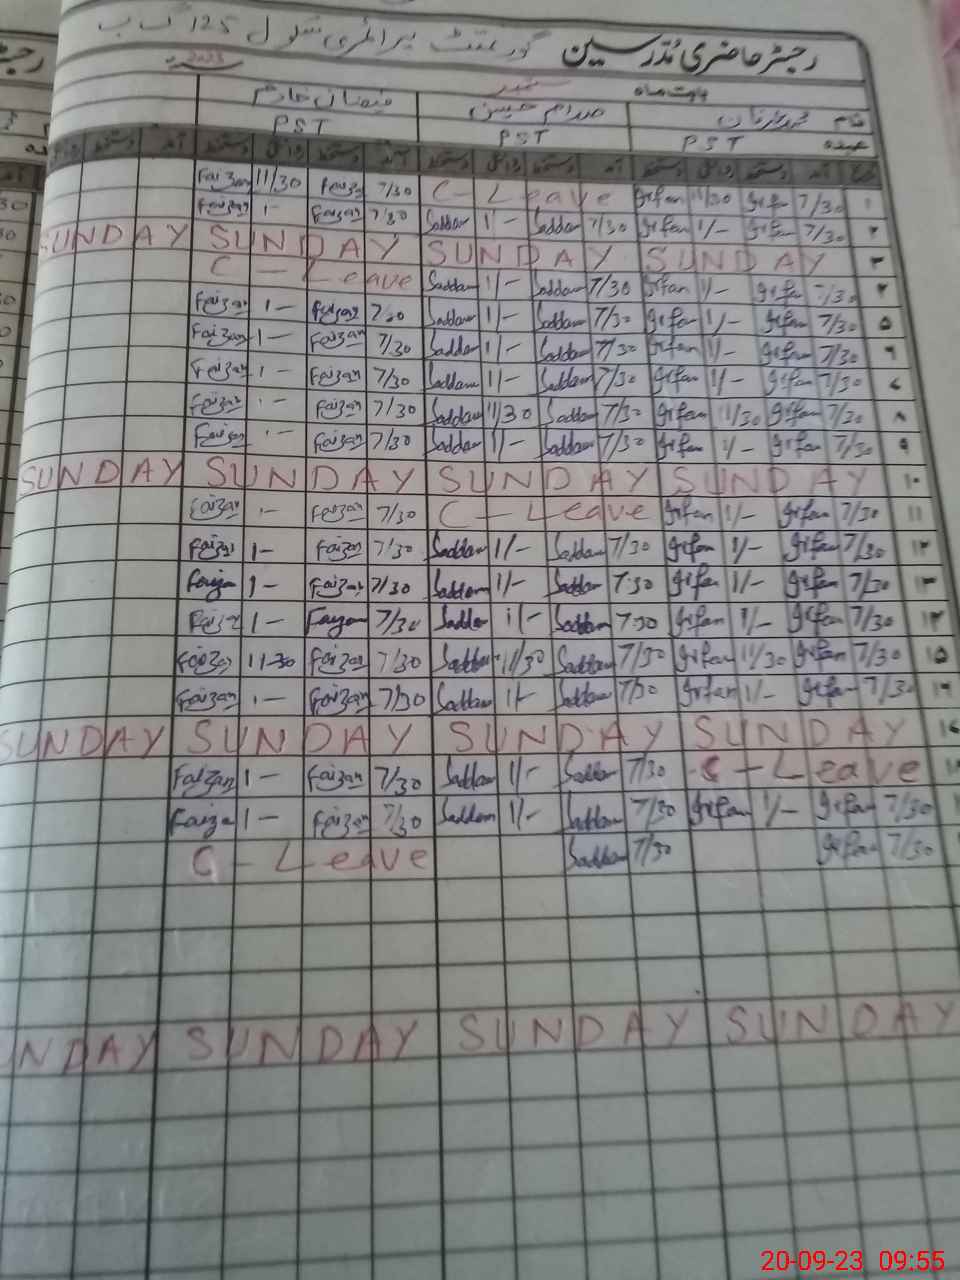 رجسٹر حاضری مُدرسین گورنمنٹ پرائمری سکول 125 گ ب
بابت ماہ ستمبر 2023
نام محمد عرفان صدام حسین فیضان خادم
عہدہ PST PST PST
تاریخ آمد دستخط روانگی دستخط آمد دستخط روانگی دستخط آمد دستخط روانگی دستخط آمد دستخط
۱ 7/30 Irfan 11/30 Irfan C - Leave 7/30 Faizan 11/30 Faizan
۲ 7/30 Irfan 1/- Irfan 7/30 Saddam 1/- Saddam 7/30 Faizan 1- Faizan
۳ SUNDAY SUNDAY SUNDAY SUNDAY
۴ 7/30 Irfan 1/- Irfan 7/30 Saddam 1/- Saddam C - Leave
۵ 7/30 Irfan 1/- Irfan 7/30 Saddam 1/- Saddam 7/30 Faizan 1- Faizan
۶ 7/30 Irfan 1/- Irfan 7/30 Saddam 1/- Saddam 7/30 Faizan 1- Faizan
۷ 7/30 Irfan 1/- Irfan 7/30 Saddam 1/- Saddam 7/30 Faizan 1- Faizan
۸ 7/30 Irfan 11/30 Irfan 7/30 Saddam 11/30 Saddam 7/30 Faizan 1- Faizan
۹ 7/30 Irfan 1/- Irfan 7/30 Saddam 1/- Saddam 7/30 Faizan 1- Faizan
۱۰ SUNDAY SUNDAY SUNDAY SUNDAY
۱۱ 7/30 Irfan 1/- Irfan C - Leave 7/30 Faizan 1- Faizan
۱۲ 7/30 Irfan 1/- Irfan 7/30 Saddam 1/- Saddam 7/30 Faizan 1- Faizan
۱۳ 7/30 Irfan 1/- Irfan 7:30 Saddam 1/- Saddam 7/30 Faizan 1- Faizan
۱۴ 7/30 Irfan 1/- Irfan 7:30 Saddam 1/- Saddam 7/30 Faizan 1- Faizan
۱۵ 7/30 Irfan 11/30 Irfan 7/30 Saddam 11/30 Saddam 7/30 Faizan 11-30 Faizan
۱۶ 7/30 Irfan 1/- Irfan 7/30 Saddam 1/- Saddam 7/30 Faizan 1- Faizan
۱۷ SUNDAY SUNDAY SUNDAY SUNDAY
C - Leave 7/30 Saddam 1/- Saddam 7/30 Faizan 1- Faizan
7/30 Irfan 1/- Irfan 7/30 Saddam 1/- Saddam 7/30 Faizan 1- Faizan
7/30 Irfan 7/30 Saddam C - Leave
SUNDAY SUNDAY SUNDAY NDAY
20-09-23 09:55